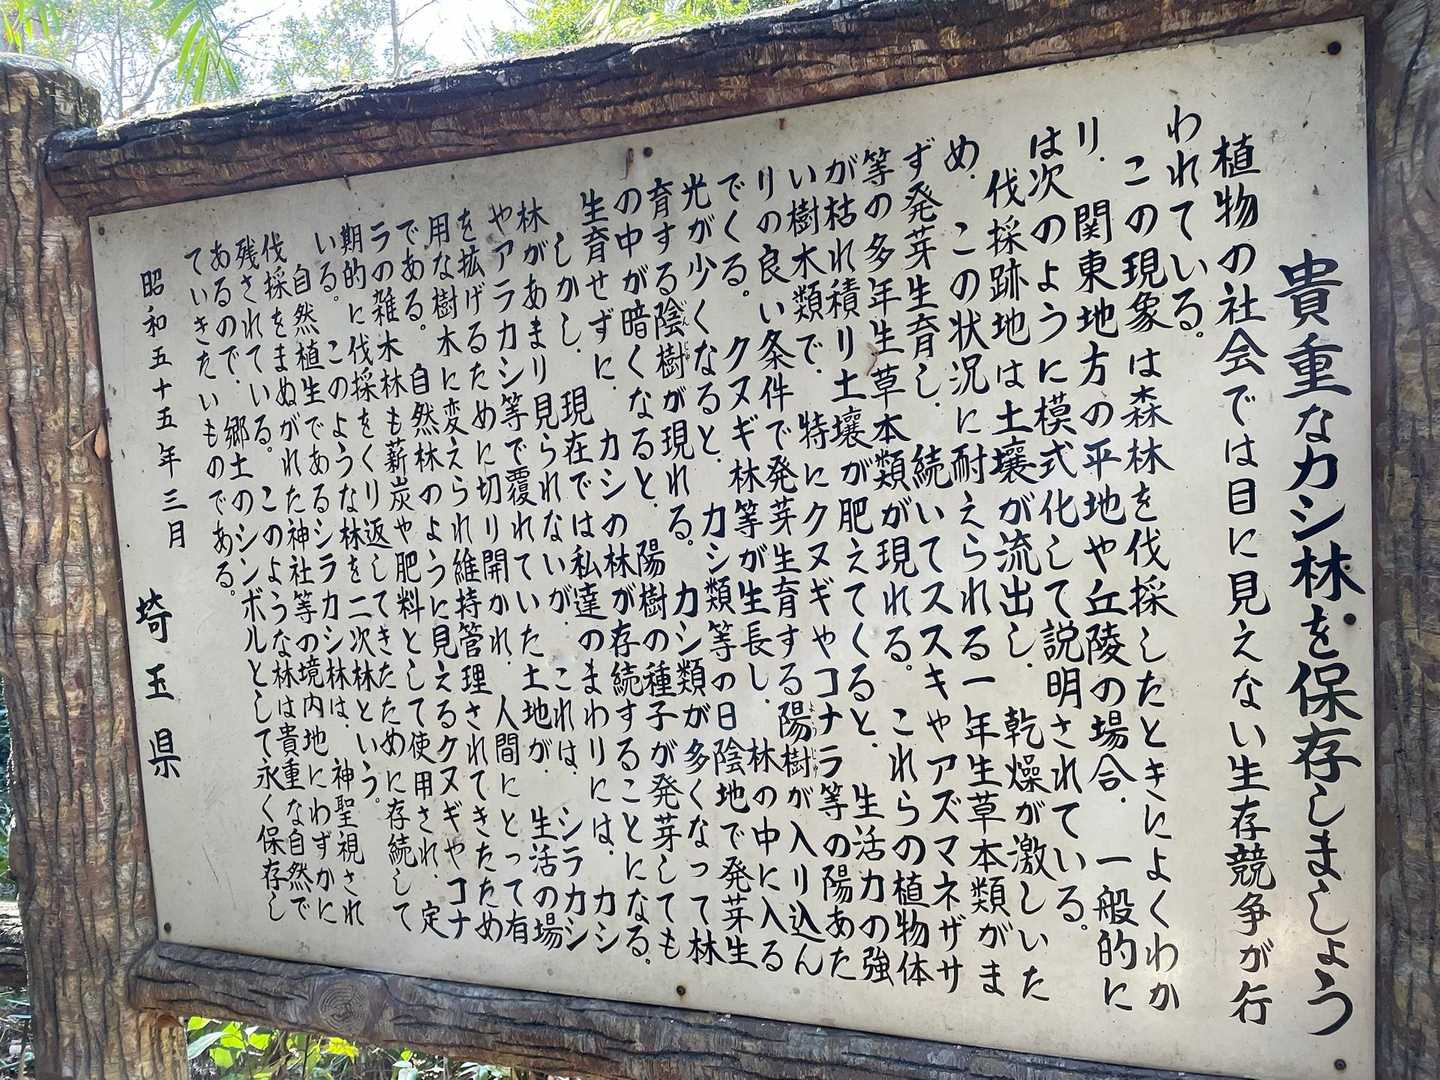 貴重なカシ林を保存しましょう
植物の社会では目に見えない生存競争が行
われている。
この現象は森林を伐採したときによくわか
り、関東地方の平地や丘陵の場合、一般的に
は次のように模式化して説明されている。
伐採跡地は土壌が流出し、乾燥が激しいた
め、この状況に耐えられる一年生草本類がま
ず発芽生育し、続いてススキやアズマネザサ
等の多年生草本類が現れる。これらの植物体
が枯れ積り土壌が肥えてくると、生活力の強
い樹木類で、特にクヌギやコナラ等の陽あた
りの良い条件で発芽生育する陽樹が入り込ん
でくる。クヌギ林等が生長し、林の中に入る
光が少くなると、カシ類等の日陰地で発芽生
育する陰樹が現れる。カシ類が多くなって林
の中が暗くなると、陽樹の種子が発芽しても
生育せずに、カシの林が存続することになる。
しかし、現在では私達のまわりには、カシ
林があまり見られないが、これは、シラカシ
やアラカシ等で覆れていた土地が、生活の場
を拡げるために切り開かれ、人間にとって有
用な樹木に変えられ維持管理されてきたため
である。自然林のように見えるクヌギやコナ
ラの雑木林も薪炭や肥料として使用され、定
期的に伐採をくり返してきたために存続して
いる。このような林を二次林という。
自然植生であるシラカシ林は、神聖視され
伐採をまぬがれた神社等の境内地にわずかに
残されている。このような林は貴重な自然で
あるので、郷土のシンボルとして永く保存し
ていきたいものである。
昭和五十五年三月　埼玉県